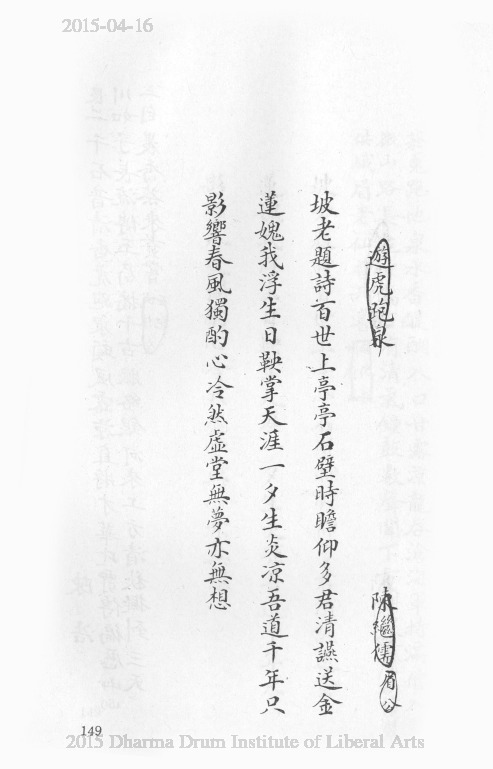 2015-04-16
遊虎跑泉 陳繼儒眉公
坡老題詩百世上亭亭石壁時瞻仰多君清讌送金
蓮媿我浮生日鞅掌天涯一夕生炎凉吾道千年只
影響春風獨酌心冷然虛堂無夢亦無想
149
2015 Dharma Drum Institute of Liberal Arts